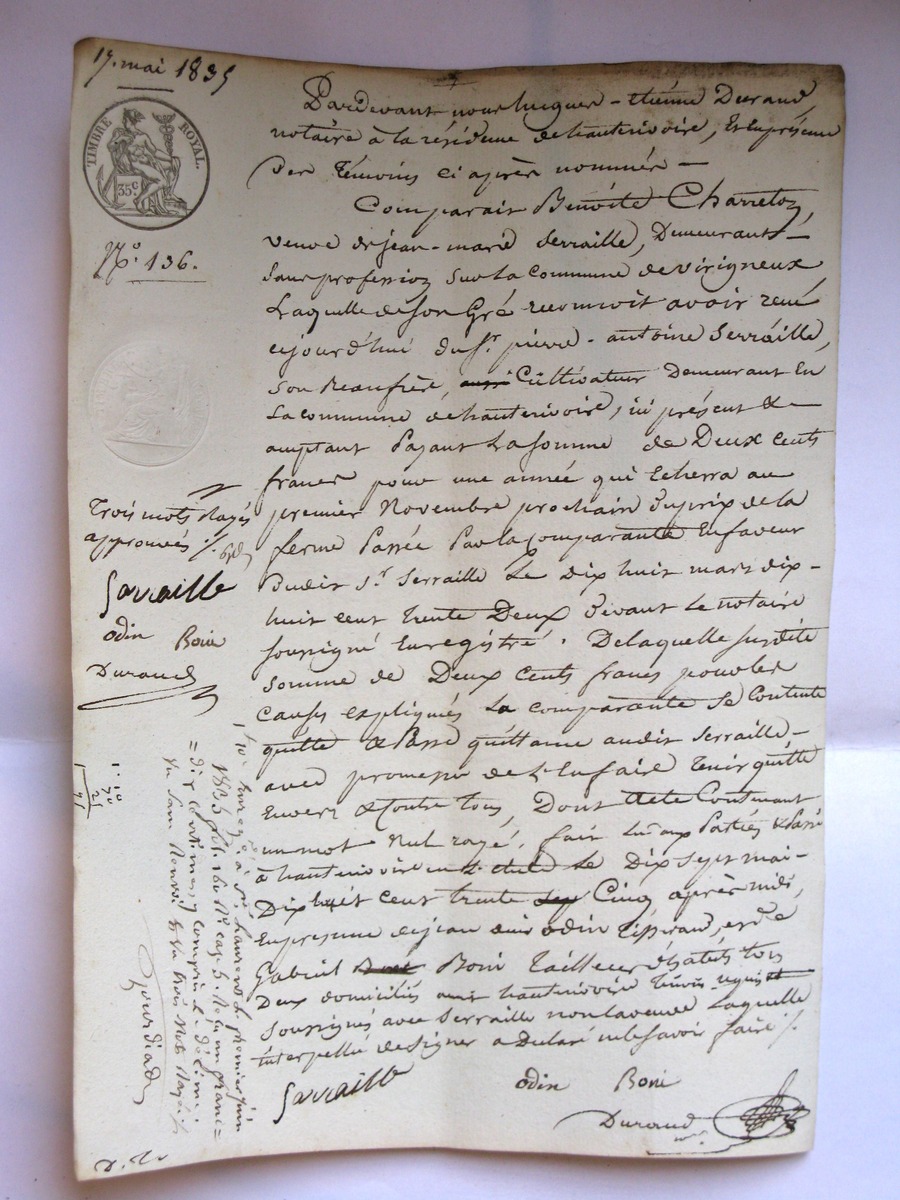 17. mai 1835
TIMBRE ROYAL.
35 c
N.° 136.
Pardevant nous jacques-etienne Durand,
notaire à la résidence de hauterivoire, Et en présence
Des témoins ci après nommés —
Comparait Benoite Charreton,
veuve de jean-marie Serraille, Demeurant —
Sans profession Sur la Commune de virigneux
Laquelle de son Gré reconnoit avoir reçu
cejourd'hui du S.r pierre-antoine Serraille,
Son Beaufrère, Cultivateur Demeurant En
La commune de hauterivoire, ici présent &
comptant Payant La somme de Deux cents
francs pour une année qui Echerra au
premier Novembre prochain Du prix de la
ferme Passée Par la comparante En faveur
Dudit S.r Serraille Le Dix huit mars dix-
huit cent trente Deux Devant Le notaire
soussigné Enregistré. De laquelle susdite
somme de Deux Cents francs pour les
causes expliqués La comparante Se Contente
quitte & Passe quittance audit Serraille —
avec promesse de L'En faire tenir quitte
Envers & Contre tous, Dont acte Contenant
un mot Nul rayé. fait Lu aux Parties & Passé
à hauterivoire en L'étude Le Dix Sept mai —
Dix huit cent trente Cinq après midi,
En présence de jean odin Tisserand, et de
Gabriel Boni Tailleur d'habits tous
Deux domiciliés audit hauterivoire témoins requis
soussignés avec Serraille non la veuve Laquelle
interpellée de signer a Déclaré ne le savoir faire ./.
Sarraille
odin Boni
Durand
Trois mots Rayés
approuvés ./.
Sarraille
odin Boni
Durand
Enreg.é à S.t Laurent Le premier juin
1835 f.° 160 R.° cas. 5. Reçu un franc =
= dix centimes, y compris le décime
Vu Sans Renvoi & Vu trois Mots Rayés ./.
Jourdiade